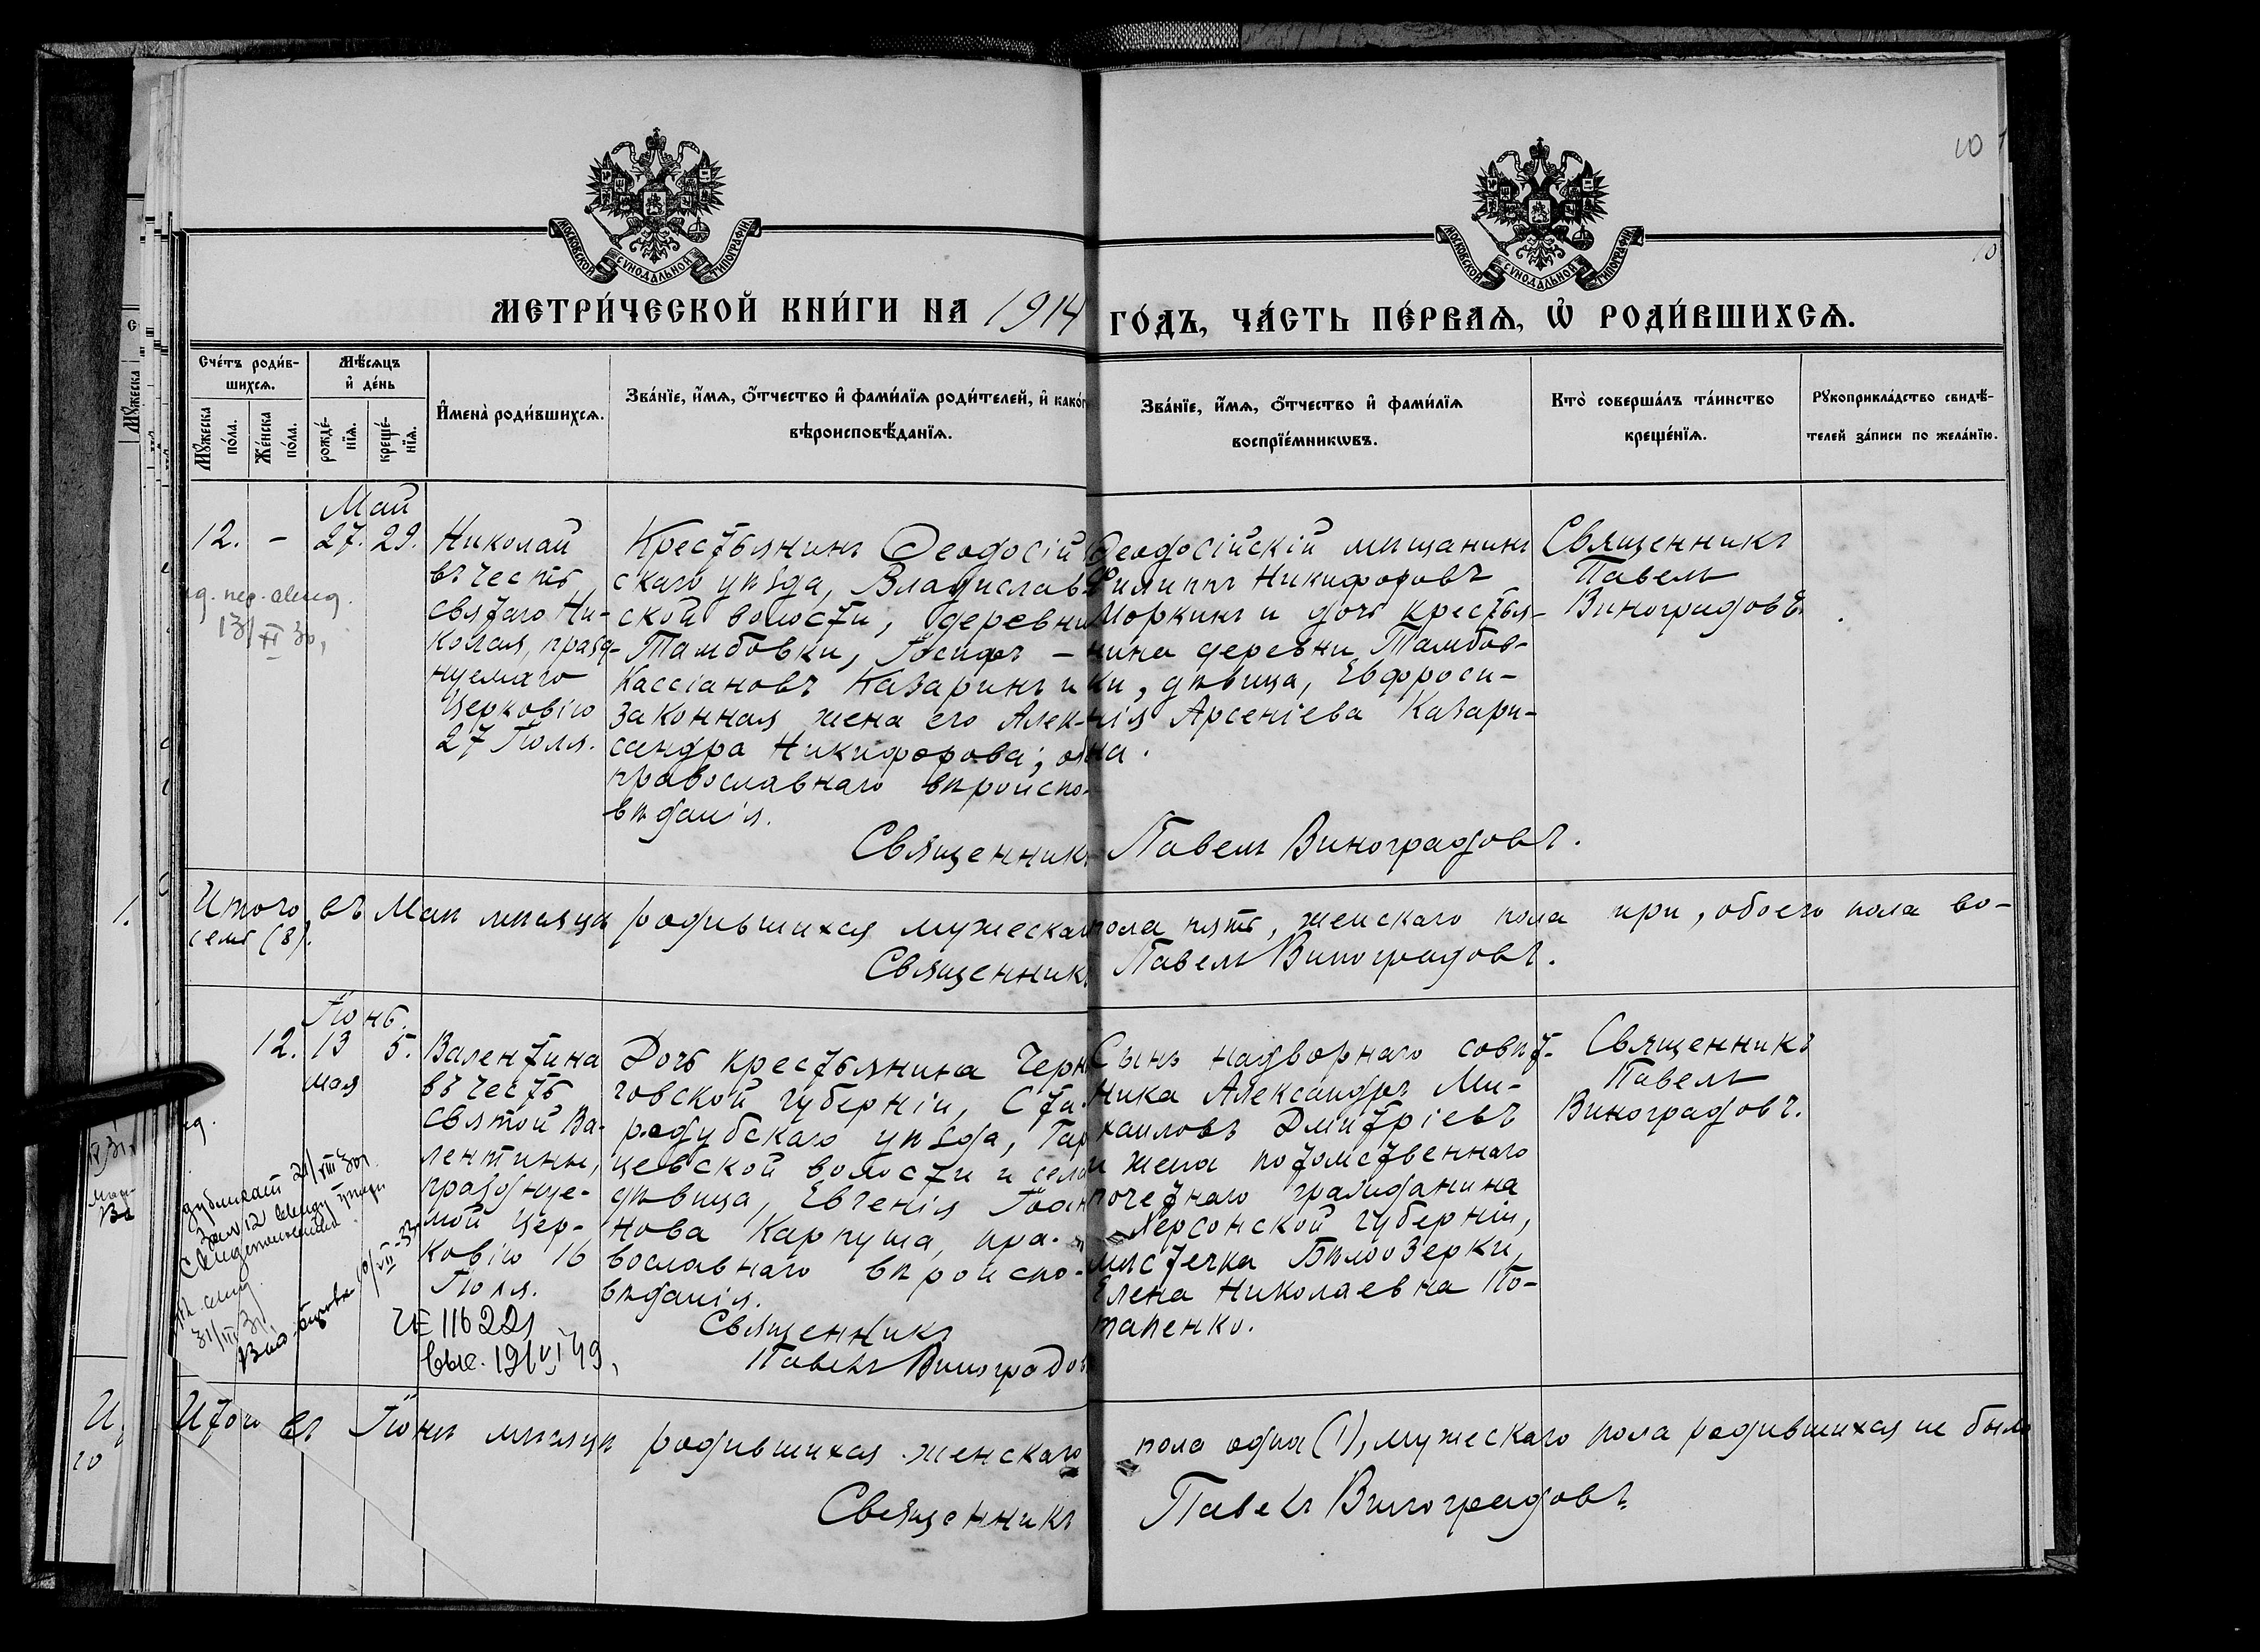 10
10
МОСКОВСКОЙ СѴНОДАЛЬНОЙ ТИПОГРАФІИ.
МОСКОВСКОЙ СѴНОДАЛЬНОЙ ТИПОГРАФІИ.
МЕТРИ́ЧЕСКОЙ КНИ́ГИ НА 1914 ГО́ДЪ, ЧА́СТЬ ПЕ́РВАѦ, Ѡ҆ РОДИ́ВШИХСѦ.
Сче́тъ роди́в-
шихсѧ.
Мꙋжеска
по́ла.
Же́нска
по́ла.
Мѣ́сѧцъ
и҆ де́нь
рожде́-
нїѧ.
креще́-
нїѧ.
И҆мена̀ роди́вшихсѧ.
Зва́нїе, и҆́мѧ, ѻ҆́тчество и҆ фами́лїѧ роди́телей, и҆ како́гѡ
вѣроисповѣ́данїѧ.
Зва́нїе, и҆́мѧ, ѻ҆́тчество и҆ фами́лїѧ
воспрїе́мникѡвъ.
Кто̀ соверша́лъ та́инство
креще́нїѧ.
Рꙋкоприкла́дство свидѣ́-
телей за́писи по жела́нїю.
Май
12. - 27. 29.
Николай
въ честь
святаго Ни-
колая, празд-
нуемаго
Церковію
27 Іюля.
Крестьянинъ Ѳеодосій
скаго уѣзда, Владислав
ской волости, деревни
Тамбовки, Іосифъ -
Кассіановъ Казаринъ и
законная жена его Алек-
сандра Никифорова; оба
православнаго вѣроиспо-
вѣданія.
Ѳеодосійскій мѣщанинъ
Филиппъ Никифоровъ
Моркинъ и дочь крестья-
нина деревни Тамбов-
ки, дѣвица, Евфроси-
нія Арсеніева Казари-
на.
Священникъ
Павелъ
Виноградовъ.
13/XI 30,
Священникъ Павелъ Виноградовъ.
Итого въ Маѣ мѣсяцѣ родившихся мужескаго пола пять, женскаго пола три, обоего пола во-
семь (8).
Священникъ Павелъ Виноградовъ.
Іюнь.
12. 13 5.
мая
Валентина
въ честь
святой Ва-
лентины,
празднуе-
мой Цер-
ковію 16
Іюля.
Дочь крестьянина Черни
говской губерніи, Ста-
родубскаго уѣзда,
цевской волости и села
дѣвица, Евгенія Іоан
нова Карпуша, пра-
вославнаго вѣроиспо-
вѣданія.
Священникъ
Павелъ Виноградовъ
Сынъ надворнаго совѣт-
ника Александръ Ми-
хаиловъ Дмитріевъ
и жена потомственнаго
почетнаго гражданина
Херсонской губерніи,
мѣстечка Бѣлоозерки,
Елена Николаевна По-
тапенко.
Священникъ
Павелъ
Виноградовъ.
дубликат 21/VIII 30
31/III 31
116221
выс. 19/VI 49,
Итого въ Іюнѣ мѣсяцѣ родившихся женскаго пола одна (1), мужескаго пола родившихся не было
Священникъ Павелъ Виноградовъ.